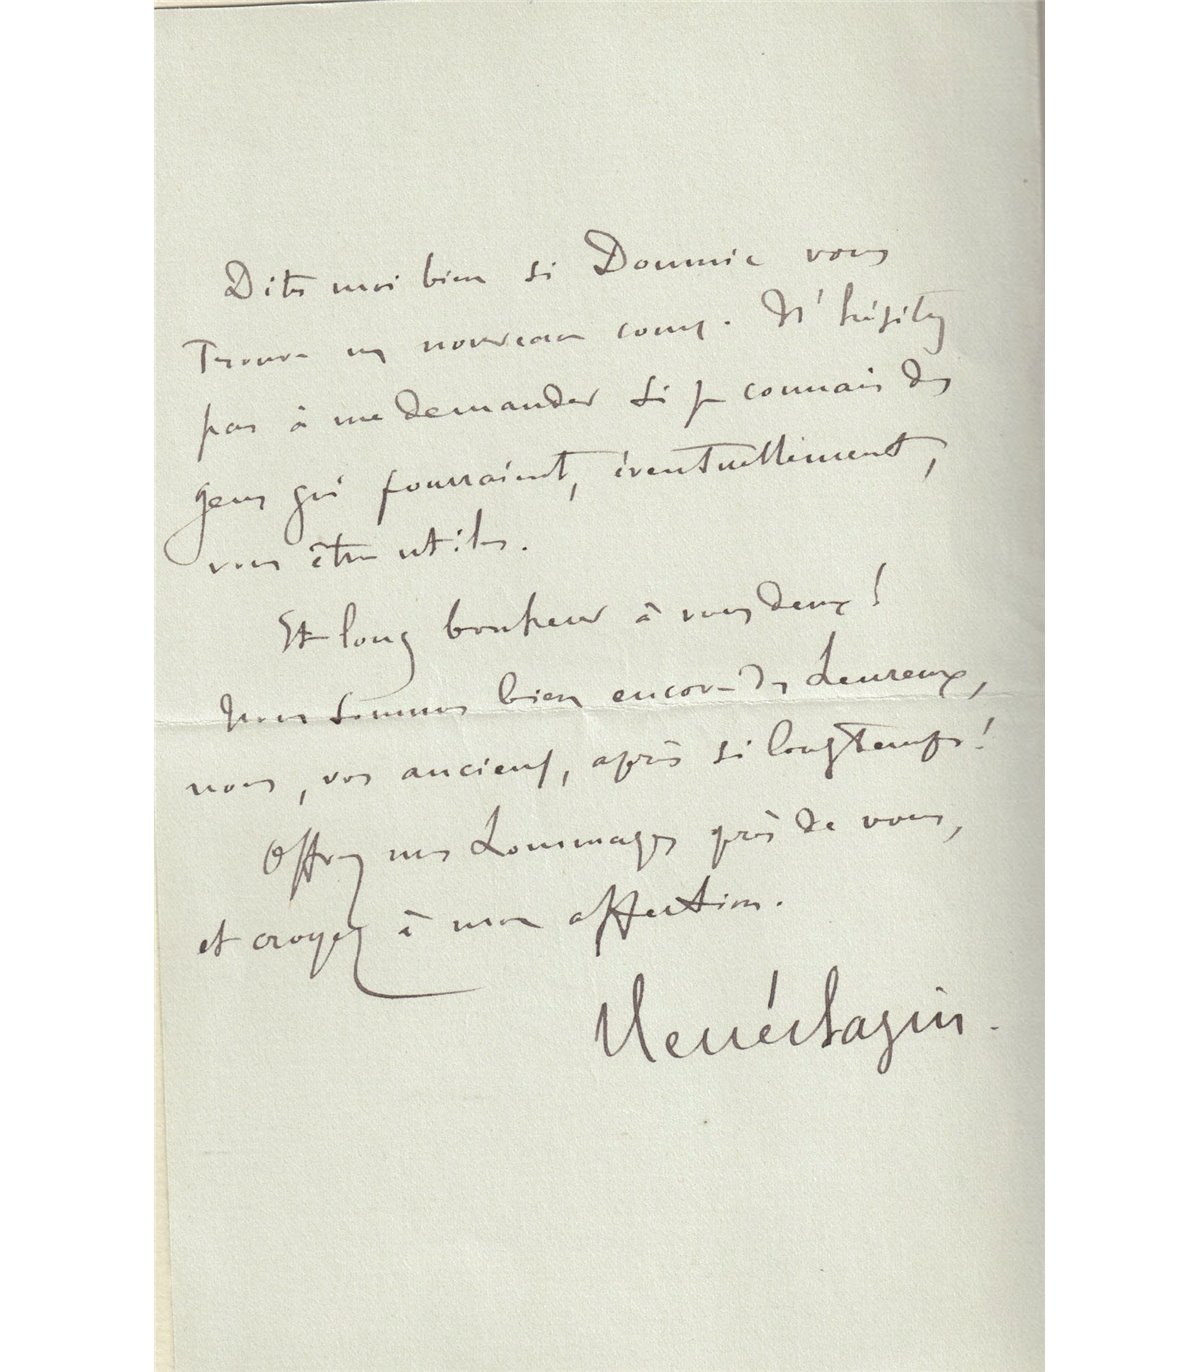 Dites moi bien si Doumic vous
trouve un nouveau cours. N'hésitez
pas à me demander si je connais des
gens qui pourraient, éventuellement,
vous être utiles.
Et long bonheur à vous deux !
Nous sommes bien encore des heureux,
nous, vos anciens, après si longtemps !
Offrez mes hommages près de vous,
et croyez à mon affection.